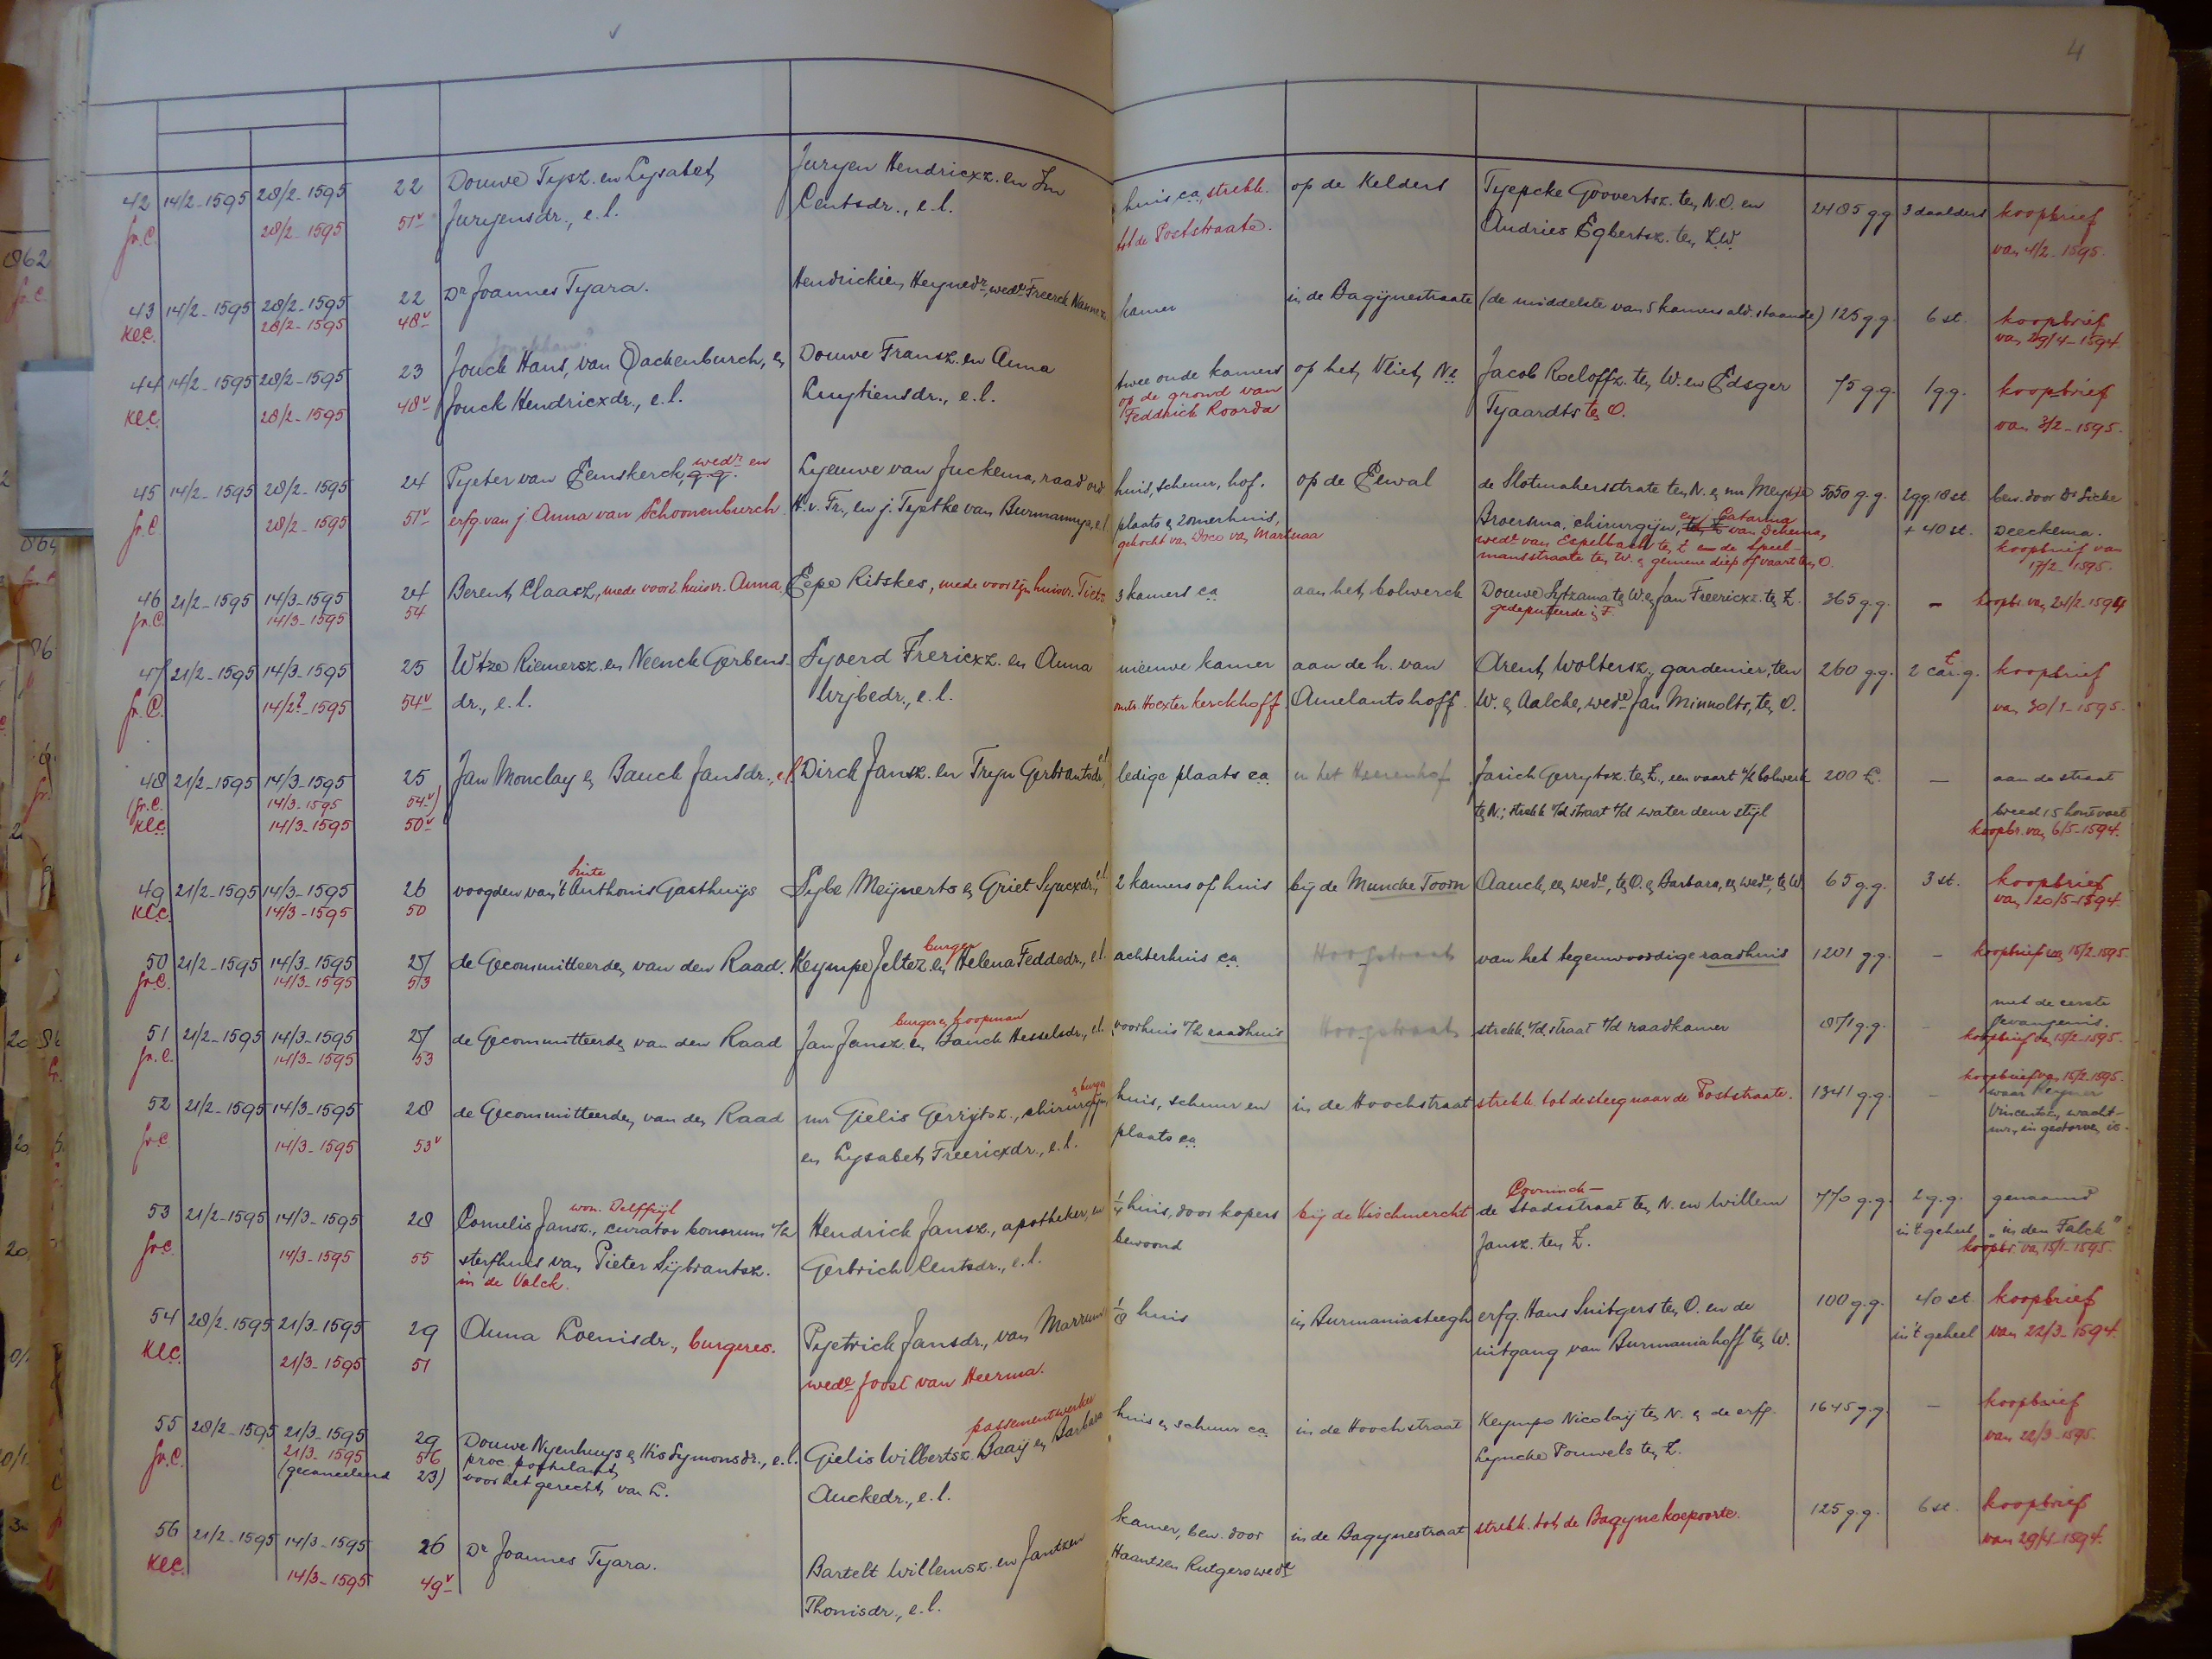 4
42 14/2-1595 28/2-1595 22 Douwe Tysz. en Lysabet Juryen Hendricxz. en Im huis ca, strekk. op de Kelders Tyepcke Goovertsz. ten N.O. en 2485 gg 3 daalders koopbrief
gr.C. 28/2-1595 51v Juryensdr., e.l. Centsdr., e.l. tot de Poststraate. Andries Egbertsz. ten Z.W. van 4/2-1595.
43 14/2-1595 28/2-1595 22 Dr Joannes Tyara. Hendrickien Heynedr, wede Freerck Nannez. kamer in de Bagynestraate (de middelste van 5 kamers ald. staande) 125 g.g. 6 st. koopbrief
klC. 28/2-1595 48v van 29/4-1594
Jonckhans?
44 14/2-1595 28/2-1595 23 Jouck Hans, van Dackenburch, en Douwe Fransz. en Anna twee oude kamers op het Vliet Ne Jacob Roeloffz. ten W. en Edsger 75 g.g. 1 gg. koopbrief
klC. 28/2-1595 48v Jouck Hendricxdr., e.l. Luytiensdr., e.l. op de grond van Tyaardts ten O. van 3/2-1595.
Feddrick Roorda
45 14/2-1595 28/2-1595 24 Pyeter van Eemskerck, g.g. wedr en Lyeuwe van Juckema, raad ord. huis, schuur, hof, op de Eewal de Slotmakersstrate ten N. en mr Meynse 5050 g.g. 2gg. 18 st. bew. door Dr Sicke
gr.C 28/2-1595 51v erfg. van j. Anna van Schoonenburch H.v.Fr., en j. Tyetke van Burmannya, e.l. plaats en zomerhuis, Broersma, chirurgijn, ten Z en j. Catarina van Dekema, + 40 st. Deeckema.
gekocht van Doco van Martnaa wede van Espelbach ten Z en de Speel- koopbrief van
mansstraate ten W. en gemene diep of vaart ten O. 17/2 1595.
46 21/2-1595 14/3-1595 24 Berent Claasz, mede voor z. huisvr. Anna Eepe Ritskes, mede voor zijn huisvr. Tietz 3 kamers ca aan het bolwerck Douwe Sytzama ten W. en Jan Freericxz. ten Z. 365 g.g. - koopbr. van 24/2-1594
gr.C. 14/3-1595 54 gedeputeerde in F.
47 21/2-1595 14/3-1595 25 Wtze Riemersz. en Neenck Gerbens- Syoerd Frericxz. en Anna nieuwe kamer aan de h. van Arent Woltersz., gardenier, ten 260 g.g. 2 car. g. koopbrief
gr.C. 14/2?-1595 54v dr., e.l. Wybedr., e.l. omtr. Hoexter kerckhoff. Amelantshoff. W. en Aalcke, wede Jan Minnolts, ten O. van 30/1-1595.
48 21/2-1595 14/3-1595 25 Jan Monclay en Bauck Jansdr., e.l. Dirck Jansz. en Tryn Gerbrantsdr, e.l. ledige plaats ca in het Heerenhof Jarich Gerrytsz. ten Z., een vaart a/h bolwerk 200 £. - aan de straat
(gr.C. 14/3-1595 54v) ten N.; strekk v/d straat t/d water deur stijl breed 15 houtvoet
klC. 14/3-1595 50v koopbr. van 6/5-1594.
49 21/2-1595 14/3-1595 26 voogden van 't Sinte Anthonis Gasthuys Sybe Meynerts en Griet Syucxdr., e.l. 2 kamers of huis bij de Muncke Toorn Aauck, en wede, ten O. en Barbara, en wede, ten W 65 g.g. 3 st. koopbrief
klC. 14/3-1595 50 van 20/5-1594.
50 21/2-1595 14/3-1595 27 de Gecommitteerden van den Raad. Keympe Jeltez. burger en Helena Feddedr., e.l. achterhuis ca. Hoogstraat van het tegenwoordige raadhuis 1201 g.g. - koopbrief van 15/2-1595.
gr.C. 14/3-1595 53
51 21/2-1595 14/3-1595 27 de Gecommitteerden van den Raad Jan Jansz. burger en koopman en Bauck Hesselsdr., e.l. voorhuis v/h raadhuis Hoogstraat strekk. v/d. straat t/d raadkamer 871 g.g. - met de eerste
gevangenis.
gr.C. 14/3-1595 53 koopbrief van 15/2-1595.
52 21/2-1595 14/3-1595 28 de Gecommitteerden van den Raad mr Gielis Gerrytsz., chirurgijn en burger huis, schuur en in de Hoochstraat strekk. tot de steeg naar de Poststraate. 1341 g.g. - koopbrief van 15/2-1595.
waar Reyner
gr.C 14/3-1595 53v en Lysabet Freericxdr., e.l. plaats ca. Vincentsz., wacht-
mr, in gestorven is.
53 21/2-1595 14/3-1595 28 Cornelis Jansz., won. Delffzyl curator bonorum v/h Hendrick Jansz., apotheker, en 1/4 huis, door kopers bij de Vischmerckt de Covninck- Stadsstraat ten N. en Willem 770 g.g. 2 g.g. genaamd
gr.C. 14/3-1595 55 sterfhuis van Pieter Sybrantsz. Gerbrich Centsdr., e.l. bewoond Jansz. ten Z. in 't geheel "in den Falck"
in de Valck. koopbr. van 15/1-1595.
54 28/2-1595 21/3-1595 29 Anna Coenisdr., burgeres. Pyetrick Jansdr., van Marrum 1/8 huis in Burmaniasteegh erfg. Hans Snitgers ten O. en de 100 g.g. 40 st. koopbrief
klC. 21/3-1595 51 wede Joost van Heerma. uitgang van Burmaniahoff ten W. in 't geheel van 22/3-1594.
55 28/2-1595 21/3-1595 29 Douwe Nyenhuys en His Symonsdr., e.l. Gielis Wilbertsz. Baaij passementwerker en Barbara huis en schuur ca in de Hoochstraat Keympo Nicolaij ten N. en de erfg. 1645 g.g. - koopbrief
gr.C. 21/3-1595 56 proc. postulant Auckedr., e.l. Lyncke Pouwels ten Z. van 22/3-1595.
(gecancelleerd 23) voor het gerecht van L.
56 21/2-1595 14/3-1595 26 Dr Joannes Tyara. Bartelt Willemsz. en Jantzen kamer, bew. door in de Bagynestraat strekk. tot de Bagyne koepoorte. 125 g.g. 6 st. koopbrief
klC. 14/3-1595 49v Thonisdr., e.l. Haantzen Rutgers wede van 29/4-1594.